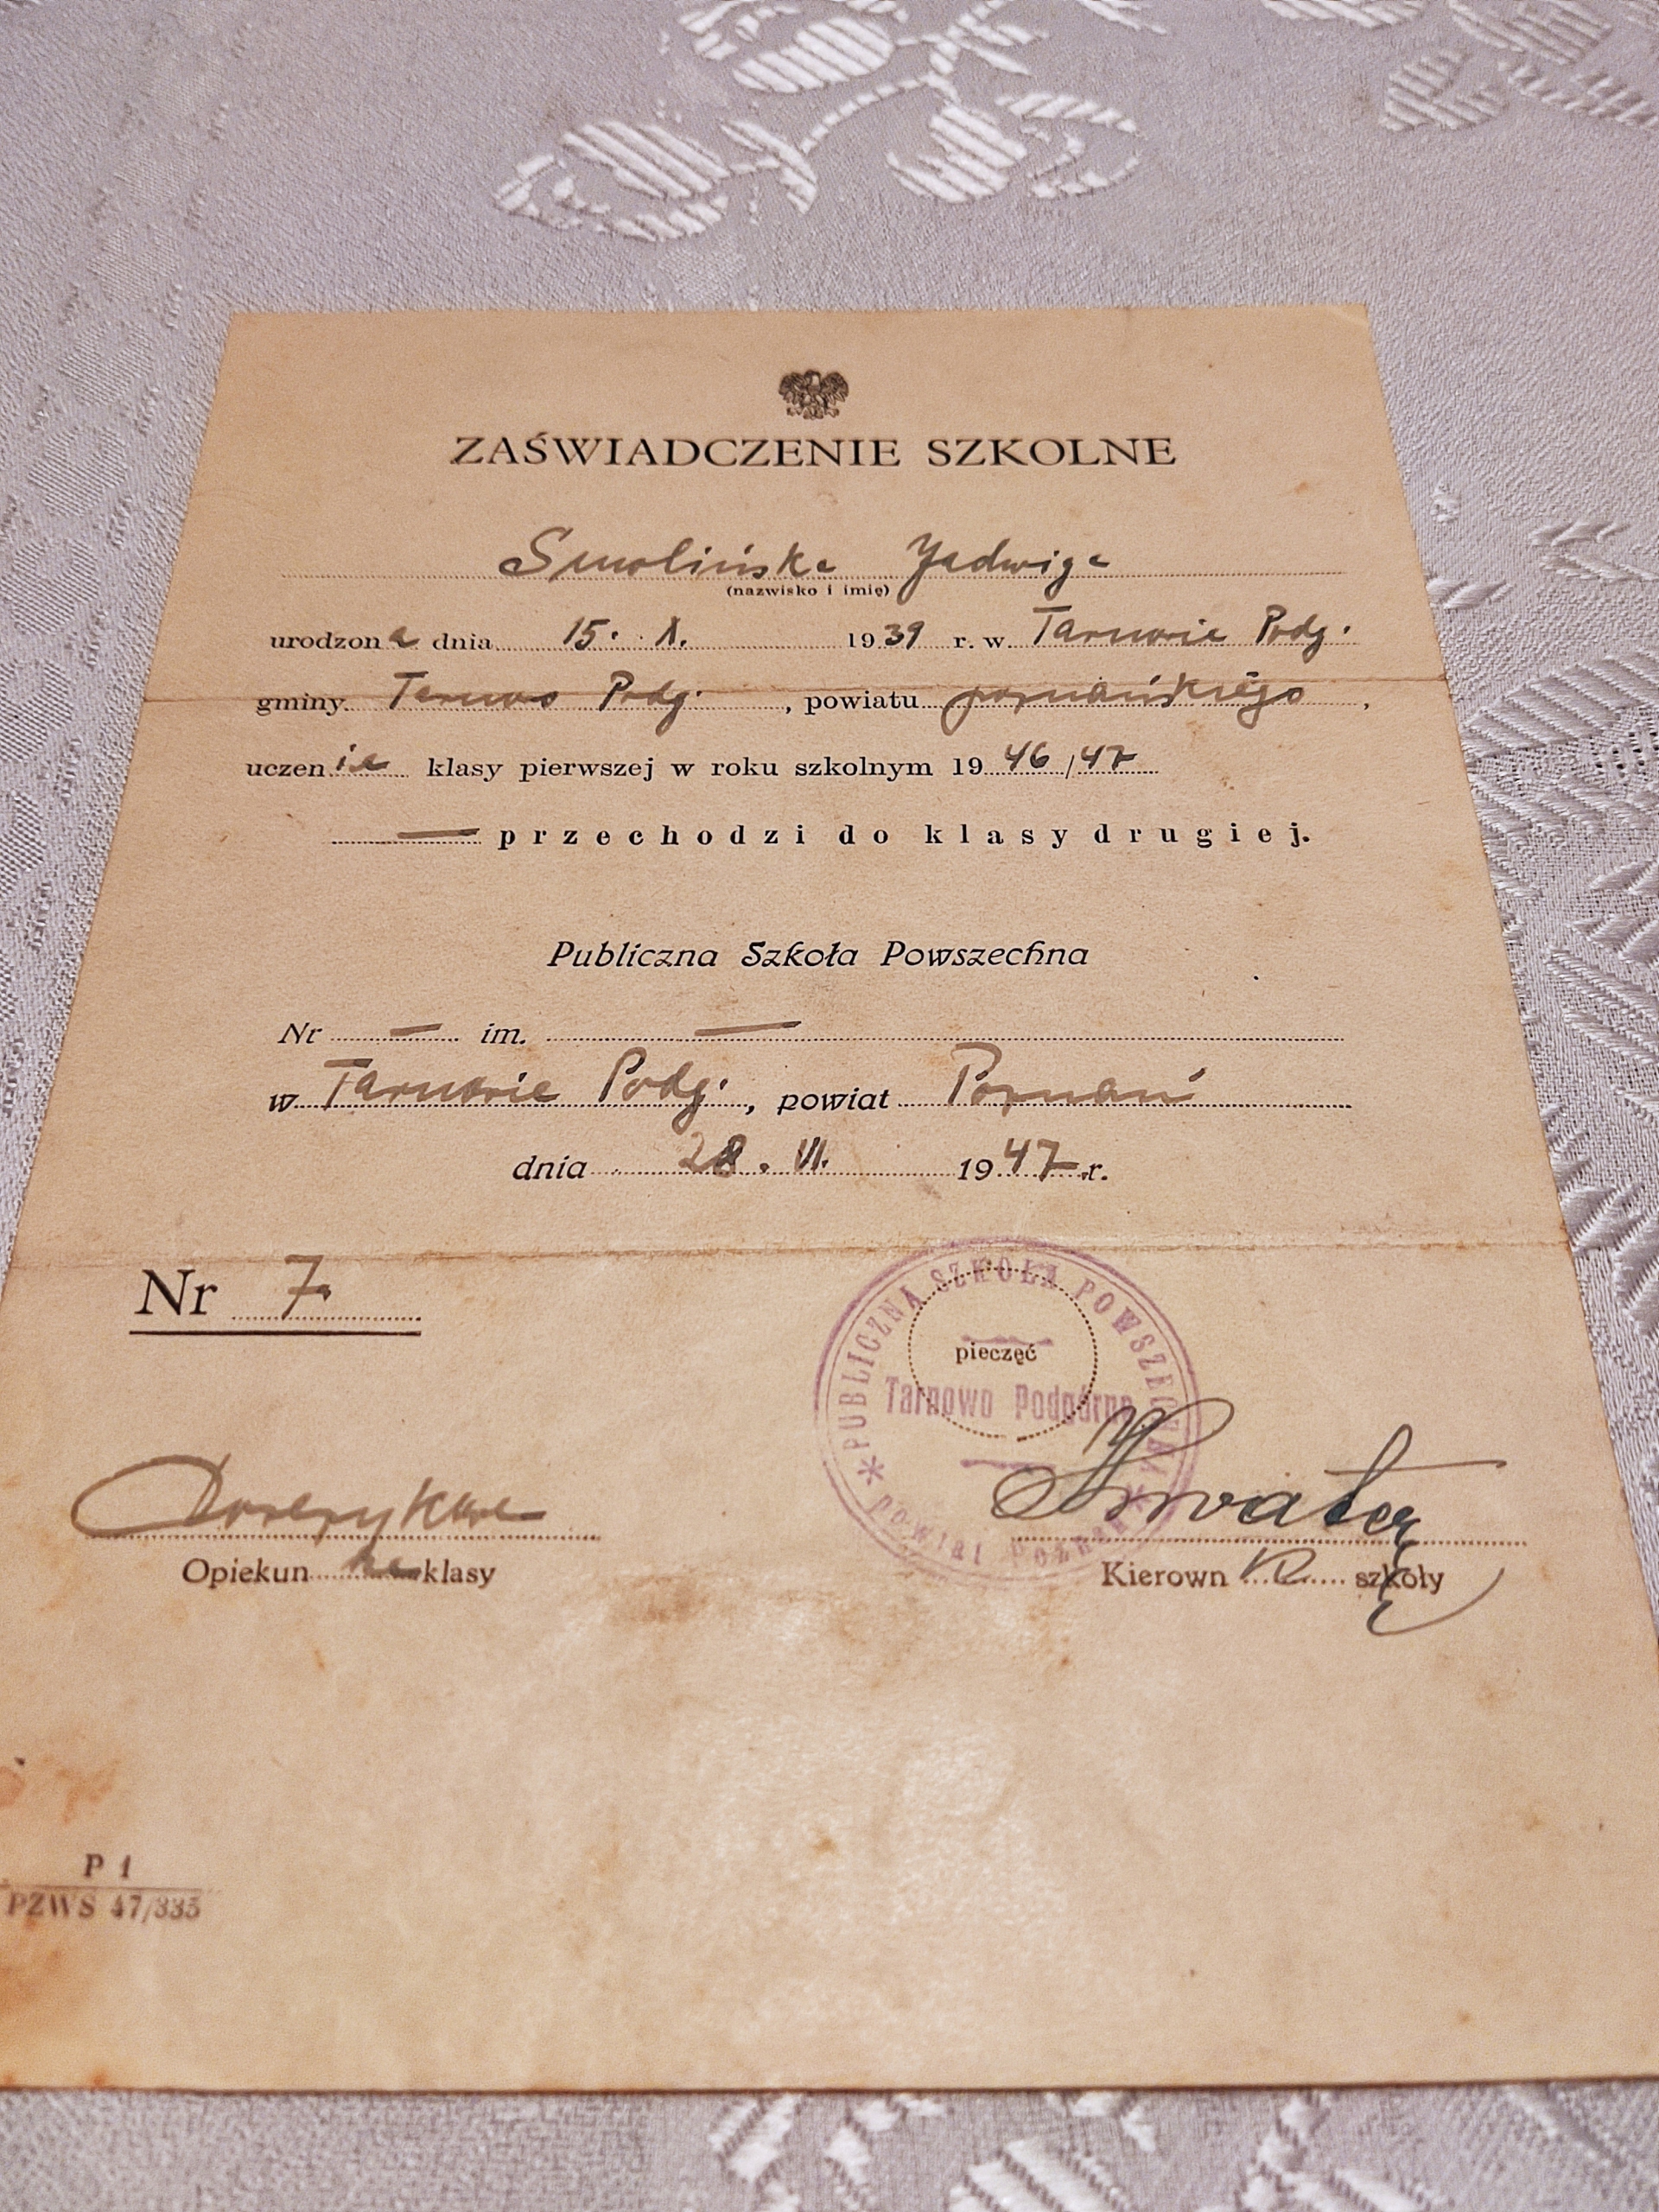 ZAŚWIADCZENIE SZKOLNE
Smolińska Jadwiga
(nazwisko i imię)
urodzona dnia 15. X. 1939 r. w Tarnowie Podg.
gminy Tarnowo Podg. , powiatu poznańskiego ,
uczenica klasy pierwszej w roku szkolnym 1946/47
— przechodzi do klasy drugiej.
Publiczna Szkoła Powszechna
Nr — im. —
w Tarnowie Podg. , powiat Poznań
dnia 28. VI. 1947 r.
Nr 7.
PUBLICZNA SZKOŁA POWSZECHNA
pieczęć
Tarnowo Podgórne
Powiat Poznań
Opiekunka klasy
Kierown szkoły
P 1
PZWS 47/335